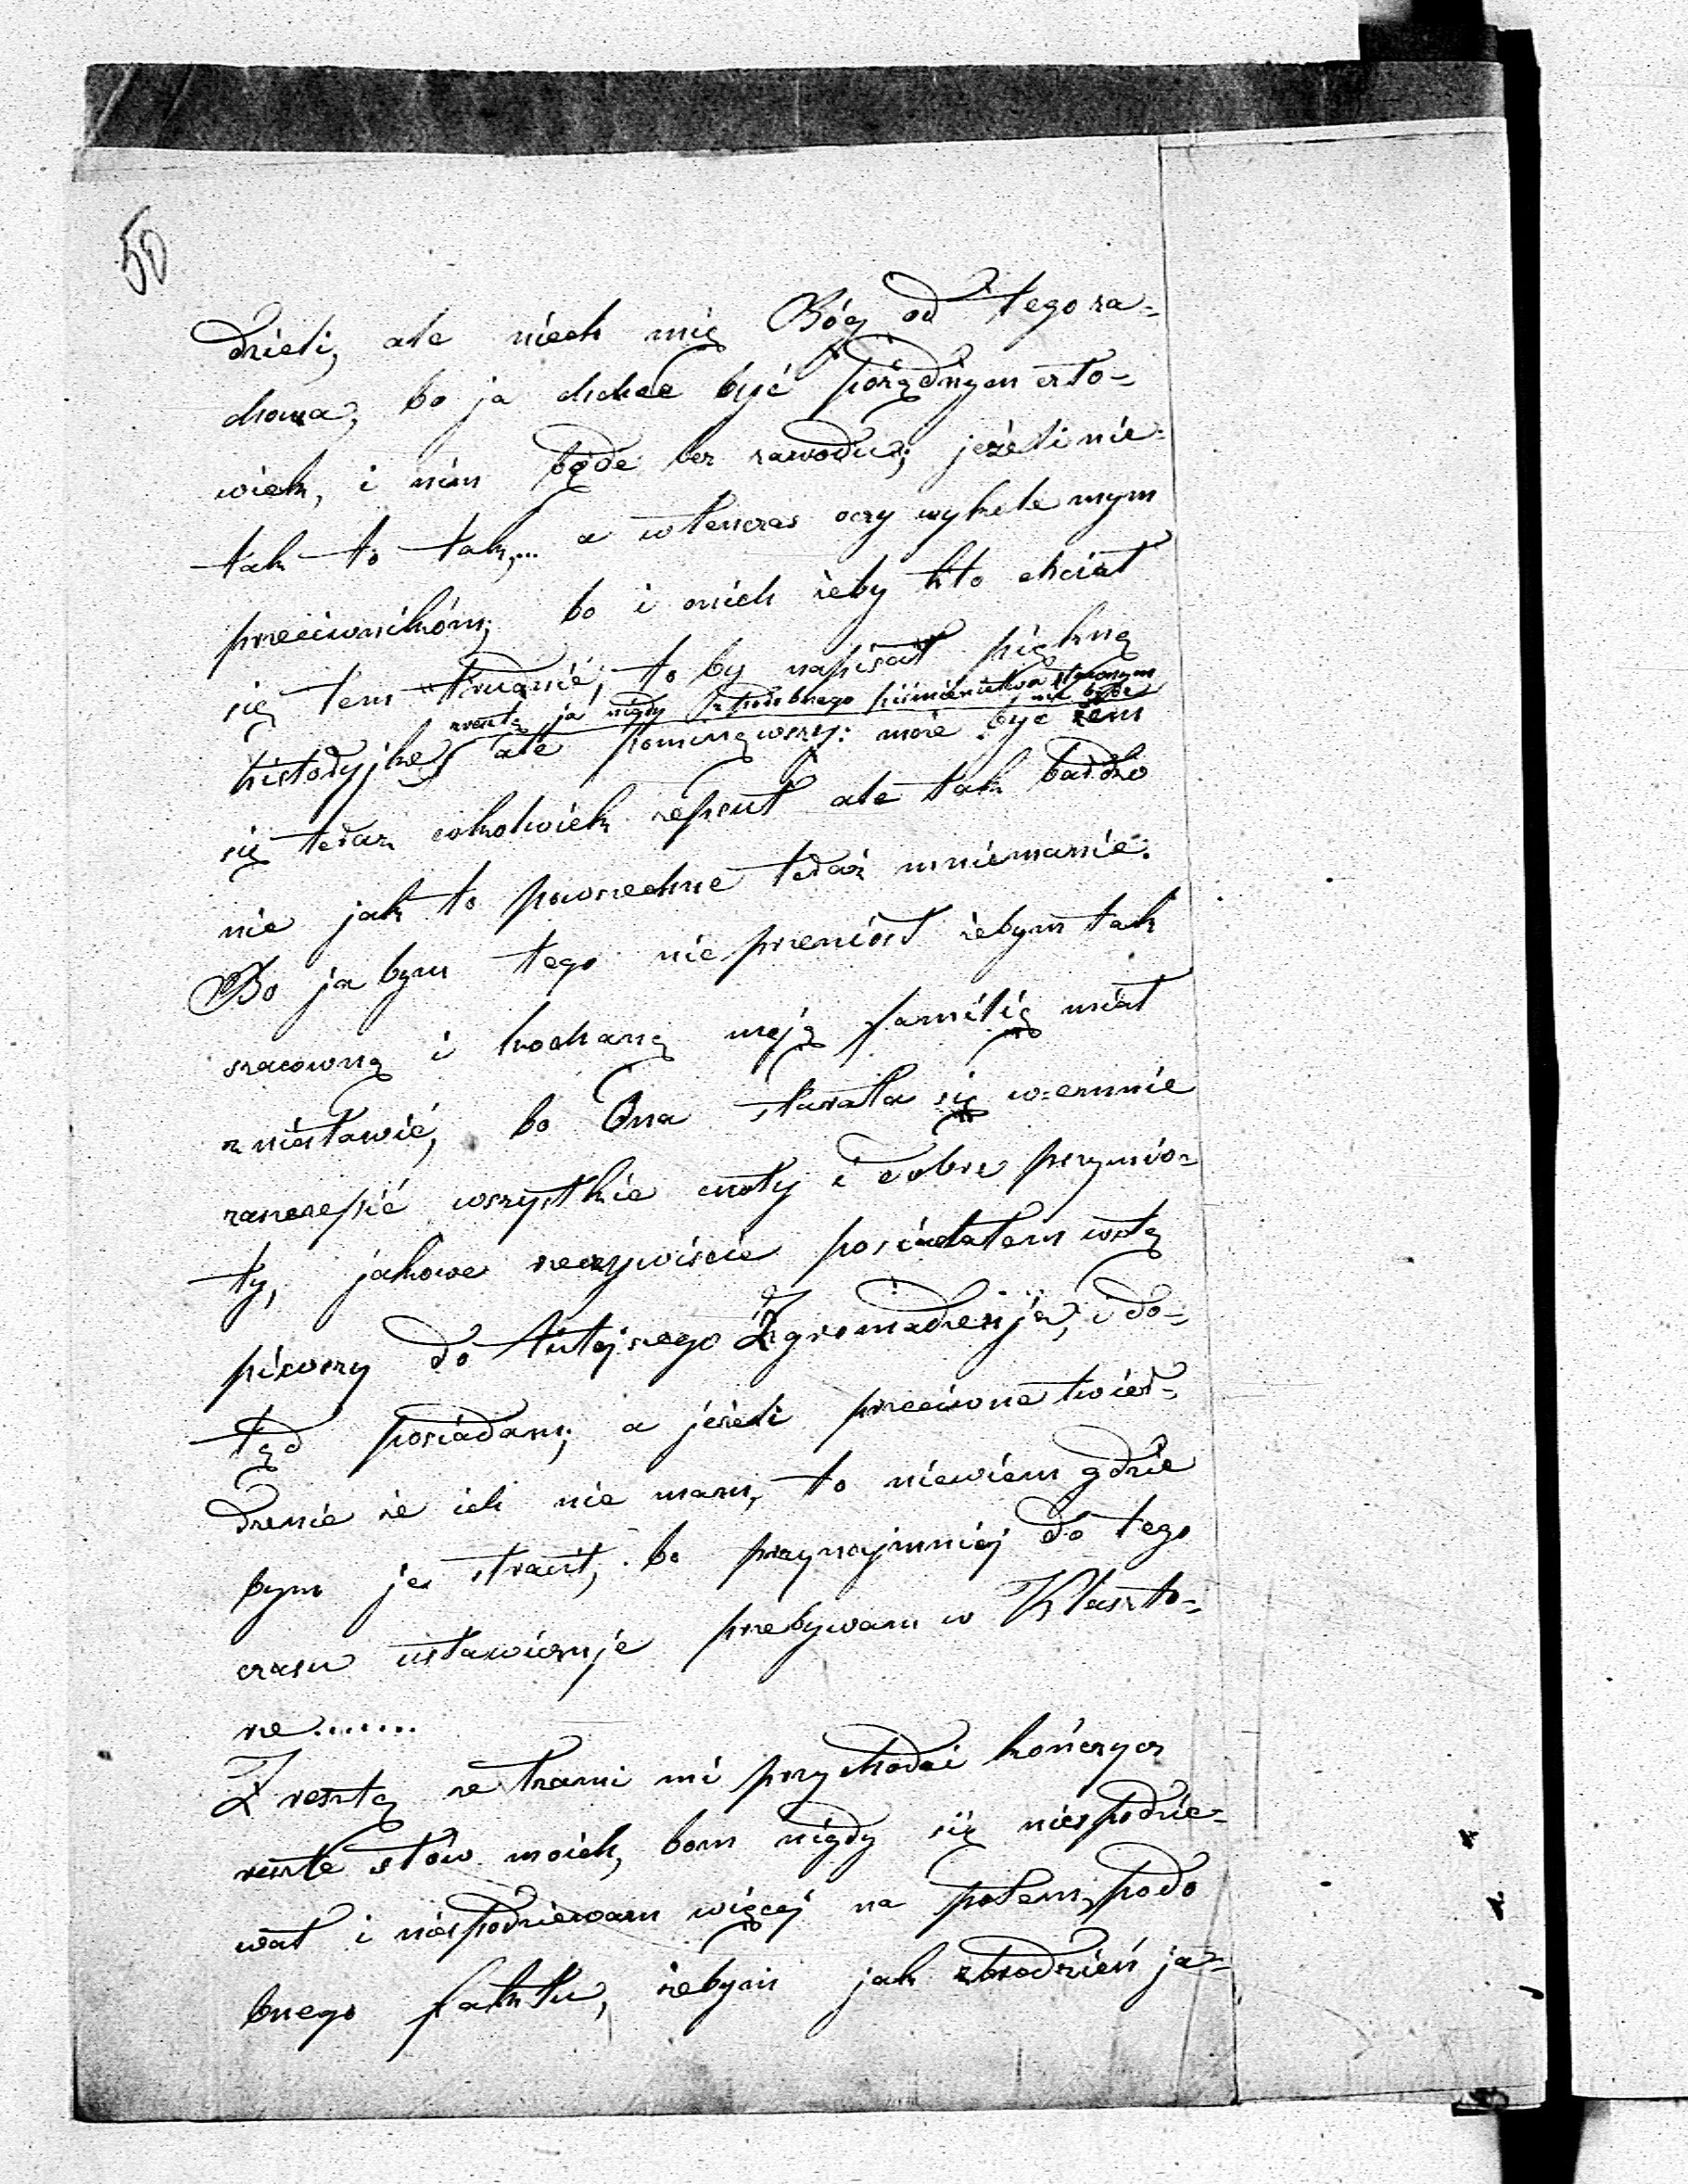 50
dzieli, ale niech mię Bóg od tego za=
chowa, bo ja chcee być porządnym czło=
wiek, i nim będe bez zawodu; jeżeli nie
tak to tak,... a wtenczas oczy wykole mym
przeciwnikóm; bo i onich żeby kto chciał
się tem trudnić, to by napisał piękną
zresztą ja nigdy z podobnego piśmienictwa słamnym nie będe
historyjke, ale pominąwszy: może być żem
się teraz cokolwiek zepsuł ale tak bardzo
nie jak to powszechne teraz mniemanie.
Bo ja bym tego nie przeniósł żebym tak
szacowną i kochaną moją familię miał
zniesławić, bo Ona starała się w=emnie
zaszczepić wszystkie cnoty i dobre przymio=
ty, jakowe rzeczywiście posiadałem wstę
piwszy do tutejszego Zgromadzenija, i do=
tąd posiadam; a jeżeli przeciwne twier=
dzenie że ich nie mam, to niewiem gdzie
bym je stracił, bo przynajmniej do tego
czasu ustawicznije przebywam w Klaszto=
rze........
Z resztą ze łzami mi przychodzi kończycz
reszte słów moich, bom nigdy się niespodzie=
wał i niespodziewam więcej na potem, podo
bnego faktu, żebym jak zbrodzień ja=